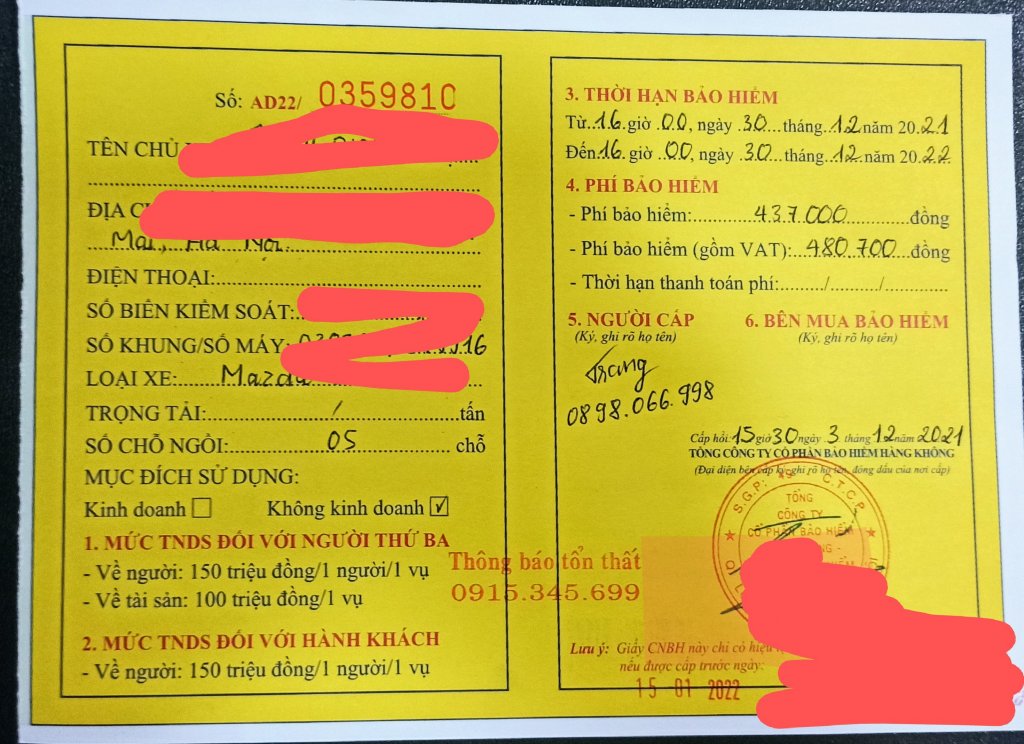 Số: AD22/ 0359810
TÊN CHỦ
ĐỊA
Mai, Hà Nội
ĐIỆN THOẠI:
SỐ BIÊN KIỂM SOÁT:
SỐ KHUNG/SỐ MÁY: 16
LOẠI XE: Mazda
TRỌNG TẢI: / tấn
SỐ CHỖ NGỒI: 05 chỗ
MỤC ĐÍCH SỬ DỤNG:
Kinh doanh ☐ Không kinh doanh ☑
1. MỨC TNDS ĐỐI VỚI NGƯỜI THỨ BA
- Về người: 150 triệu đồng/1 người/1 vụ
- Về tài sản: 100 triệu đồng/1 vụ
2. MỨC TNDS ĐỐI VỚI HÀNH KHÁCH
- Về người: 150 triệu đồng/1 người/1 vụ
Thông báo tổn thất
0915.345.699
3. THỜI HẠN BẢO HIỂM
Từ 16 giờ 00, ngày 30 tháng 12 năm 2021
Đến 16 giờ 00, ngày 30 tháng 12 năm 2022
4. PHÍ BẢO HIỂM
- Phí bảo hiểm: 437.000 đồng
- Phí bảo hiểm (gồm VAT): 480.700 đồng
- Thời hạn thanh toán phí: / /
5. NGƯỜI CẤP 6. BÊN MUA BẢO HIỂM
(Ký, ghi rõ họ tên) (Ký, ghi rõ họ tên)
Trang
0898.066.998
Cấp hồi: 15 giờ 30 ngày 3 tháng 12 năm 2021
TỔNG CÔNG TY CỔ PHẦN BẢO HIỂM HÀNG KHÔNG
(Đại diện bên cấp ký, ghi rõ họ tên, đóng dấu của nơi cấp)
S.G.P: 49 C.T.C.P
TỔNG
CÔNG TY
CỔ PHẦN BẢO HIỂM
Lưu ý: Giấy CNBH này chỉ có hiệu
nếu được cấp trước ngày:
15 -01- 2022